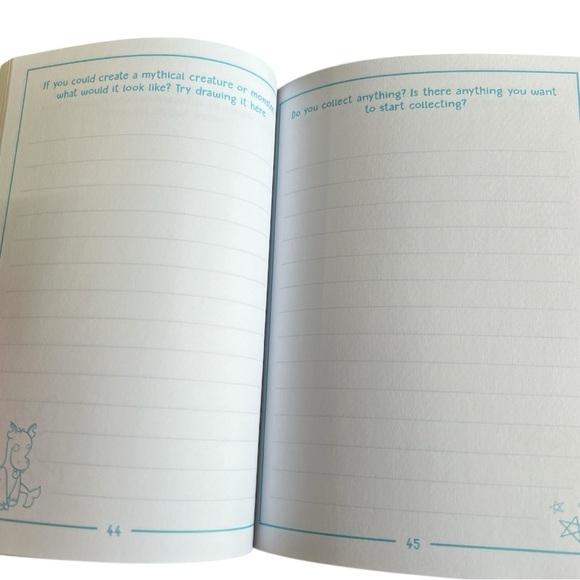 If you could create a mythical creature or monster
what would it look like? Try drawing it here.
44
Do you collect anything? Is there anything you want
to start collecting?
45